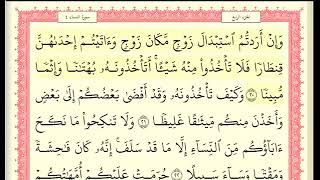 الجزء الرابع
سورة النساء ٤
وَإِنْ أَرَدتُّمُ ٱسْتِبْدَالَ زَوْجٍ مَّكَانَ زَوْجٍ وَءَاتَيْتُمْ إِحْدَىٰهُنَّ
قِنطَارًا فَلَا تَأْخُذُوا۟ مِنْهُ شَيْـًٔا ۚ أَتَأْخُذُونَهُۥ بُهْتَـٰنًا وَإِثْمًا
مُّبِينًا ٢٠ وَكَيْفَ تَأْخُذُونَهُۥ وَقَدْ أَفْضَىٰ بَعْضُكُمْ إِلَىٰ بَعْضٍ
وَأَخَذْنَ مِنكُم مِّيثَـٰقًا غَلِيظًا ٢١ وَلَا تَنكِحُوا۟ مَا نَكَحَ
ءَابَآؤُكُم مِّنَ ٱلنِّسَآءِ إِلَّا مَا قَدْ سَلَفَ ۚ إِنَّهُۥ كَانَ فَـٰحِشَةً
وَمَقْتًا وَسَآءَ سَبِيلًا ٢٢ حُرِّمَتْ عَلَيْكُمْ أُمَّهَـٰتُكُمْ